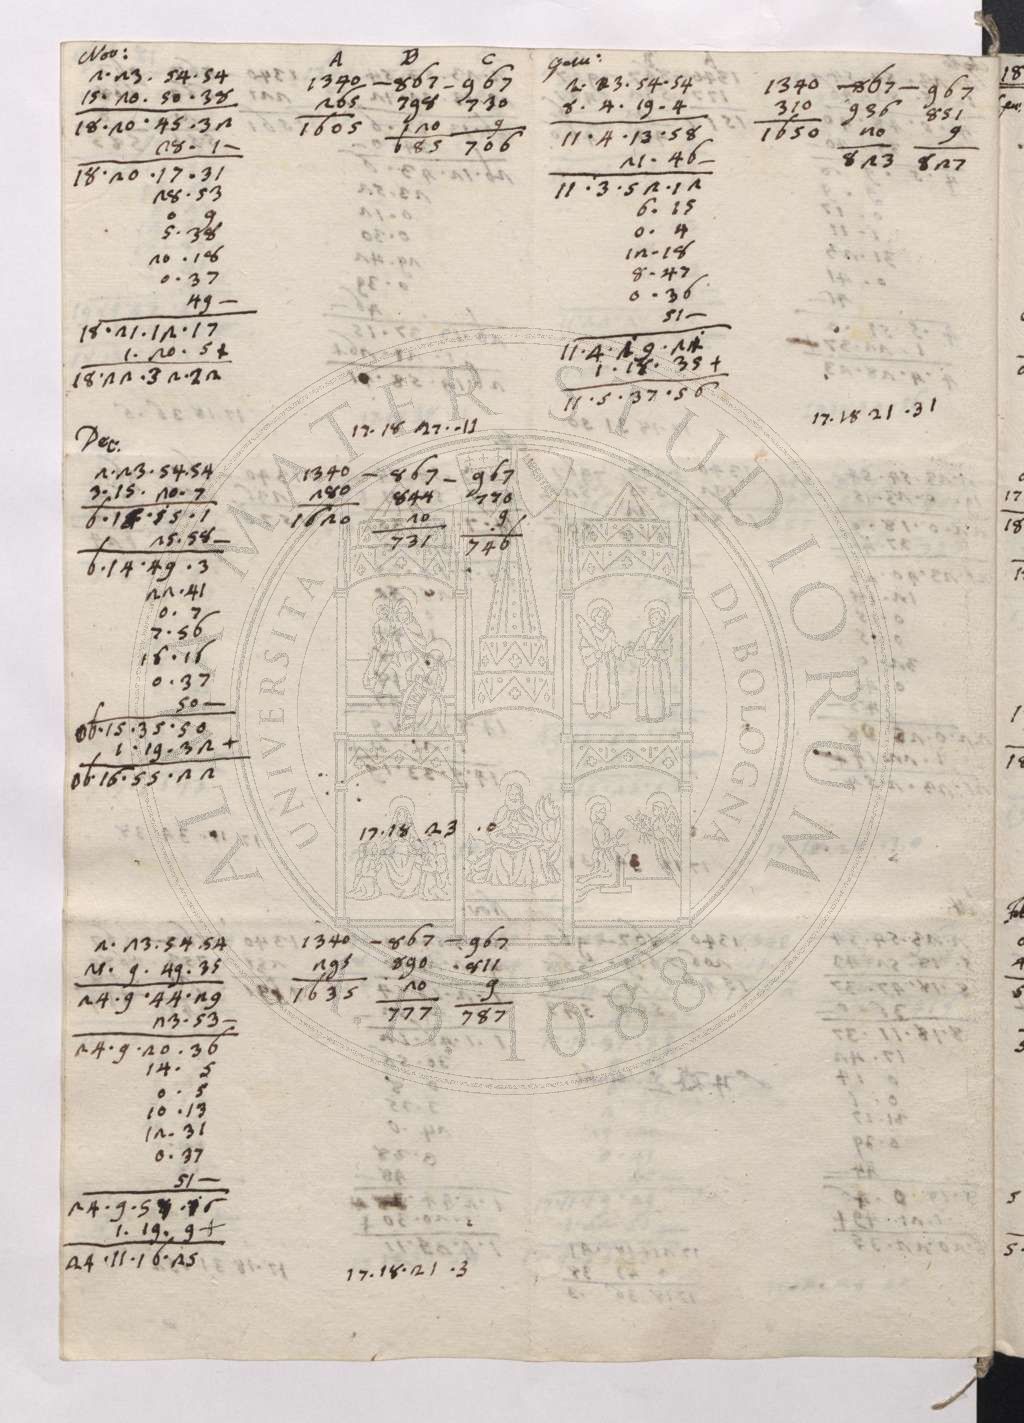 Nov:
2.23.54.54
15.20.50.38
18.20.45.32
28.1—
18.20.17.31
28.53
0 9
5.38
20.18
0.37
49—
18.21.12.17
1.20.5+
18.22.32.22
A B C
1340 — 867 — 967
265 798 730
1605 20 9
685 706
17.18 27..11
Genn:
2.23.54.54
8.4.19.4
11.4.13.58
21.46—
11.3.52.12
6.15
0.4
12.18
8.47
0.36
51—
11.4.19.21
1.18.35+
11.5.37.56
1340 — 867 — 967
310 936 851
1650 20 9
823 827
17.18.21.31
Dec.
2.23.54.54
3.15.20.7
6.15.15.1
25.58—
6.14.49.3
22.41
0.7
7.56
16.16
0.37
50—
06.15.35.50
1.19.32+
06.16.55.22
1340 — 867 — 967
280 844 770
1620 20 9
731 746
17.18 23 .0
2.23.54.54
21.9.49.35
24.9.44.29
23.53—
24.9.20.36
14.5
0.5
10.13
12.31
0.37
51—
24.9.57.16
1.19.9+
24.11.16.25
1340 — 867 — 967
295 890 .811
1635 20 9
777 787
17.18.21.3
ALMA MATER STUDIORUM
UNIVERSITA DI BOLOGNA
A.D. 1088